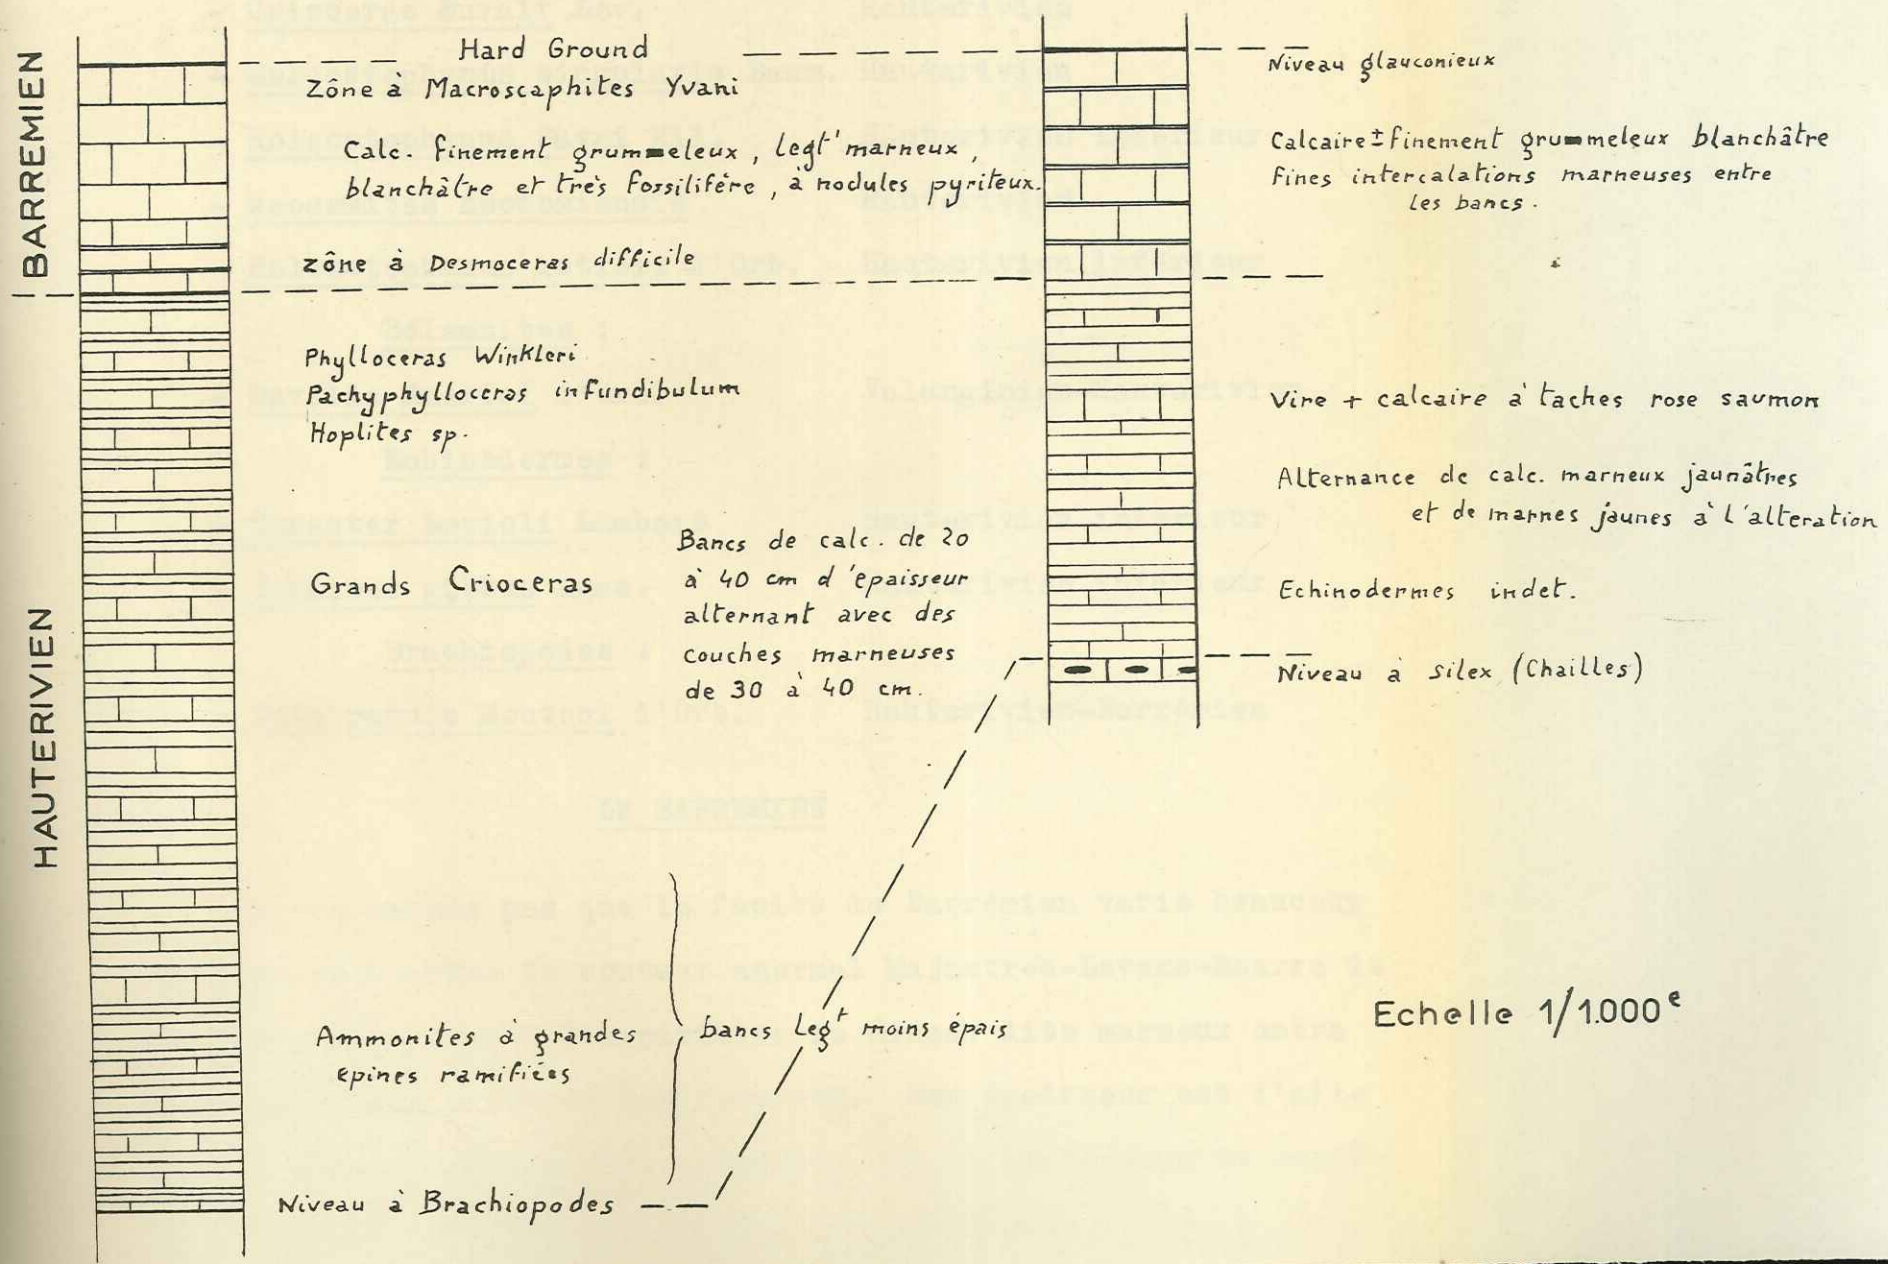 BARREMIEN
HAUTERIVIEN
Hard Ground
Zône à Macroscaphites Yvani
Calc. finement grummeleux, legt' marneux,
blanchâtre et très fossilifère, à nodules pyriteux.
Zône à Desmoceras difficile
Phylloceras Winkleri
Pachyphylloceras infundibulum
Hoplites sp.
Grands Crioceras
Bancs de calc. de 20
à 40 cm d'épaisseur
alternant avec des
couches marneuses
de 30 à 40 cm.
Ammonites à grandes
epines ramifiées
bancs legt moins épais
Niveau à Brachiopodes
Niveau glauconieux
Calcaire ± finement grummeleux blanchâtre
Fines intercalations marneuses entre
les bancs.
Vire + calcaire à taches rose saumon
Alternance de calc. marneux jaunâtres
et de marnes jaunes à l'alteration
Echinodermes indet.
Niveau à silex (Chailles)
Echelle 1/1.000e